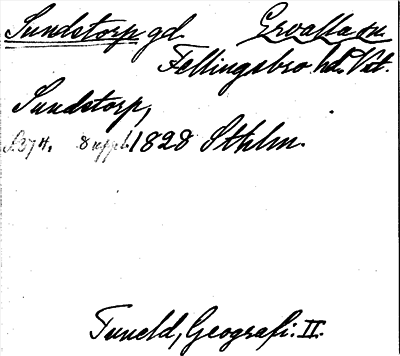 Sundstorp gd. Ervalla sn.
Fellingsbro hd. Vstm.
Sundstorp,
S. 374. 8 uppl. 1828 Sthlm.
Tuneld, Geografi. II.